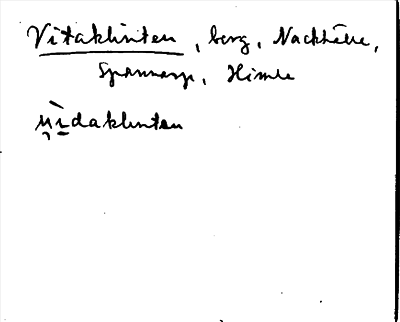 Vitaklinten, berg, Nackhälle,
Spannarp, Himle
u̯ìdaklinten